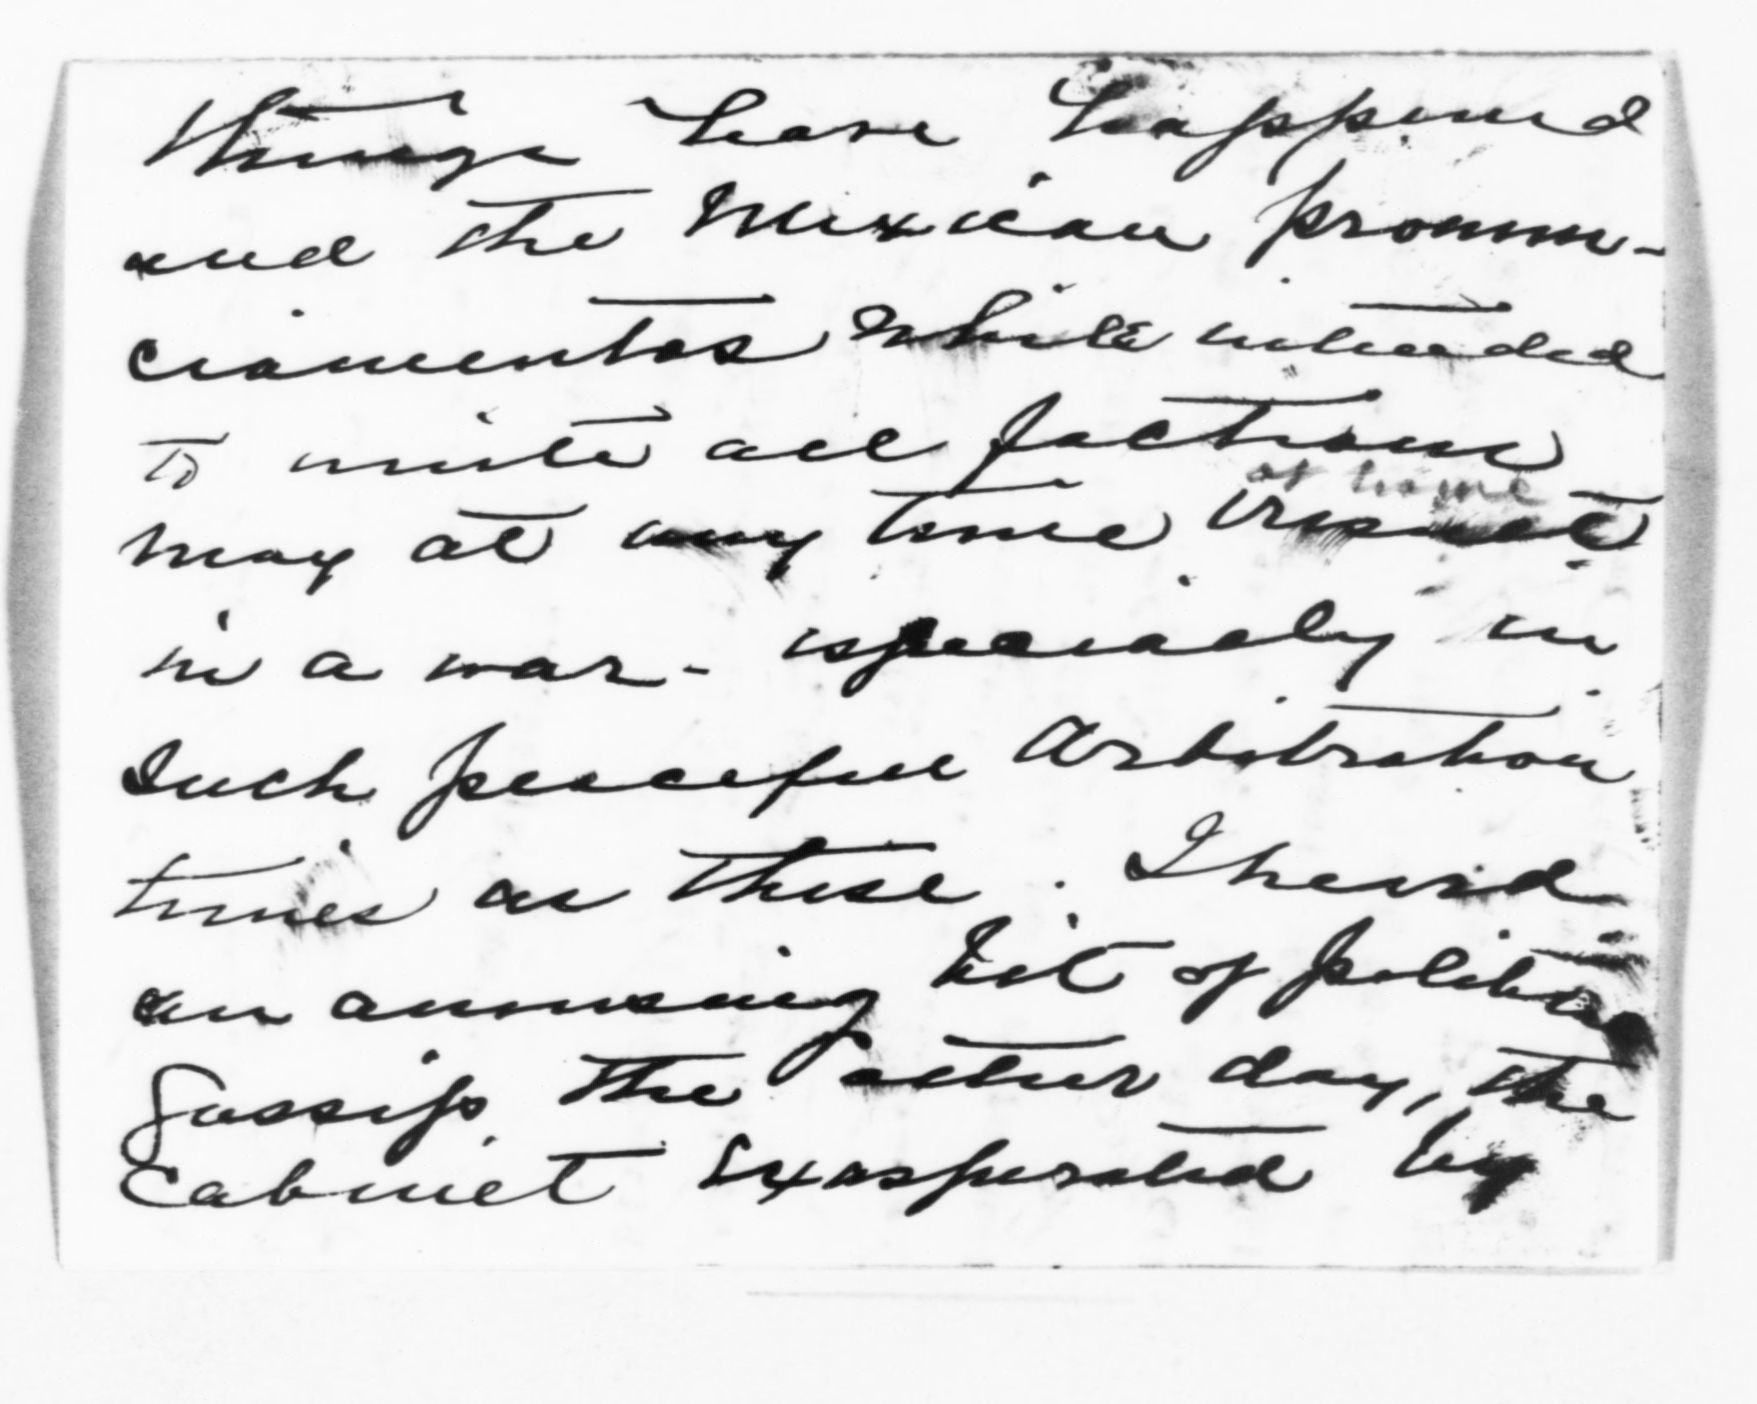 things have happened
and the Mexican pronun-
ciamentos while intended
to unite all factions
at home
may at any time result
in a war - especially in
such peaceful arbitration
times as these. I heard
an amusing bit of political
gossip the other day, the
Cabinet exasperated by